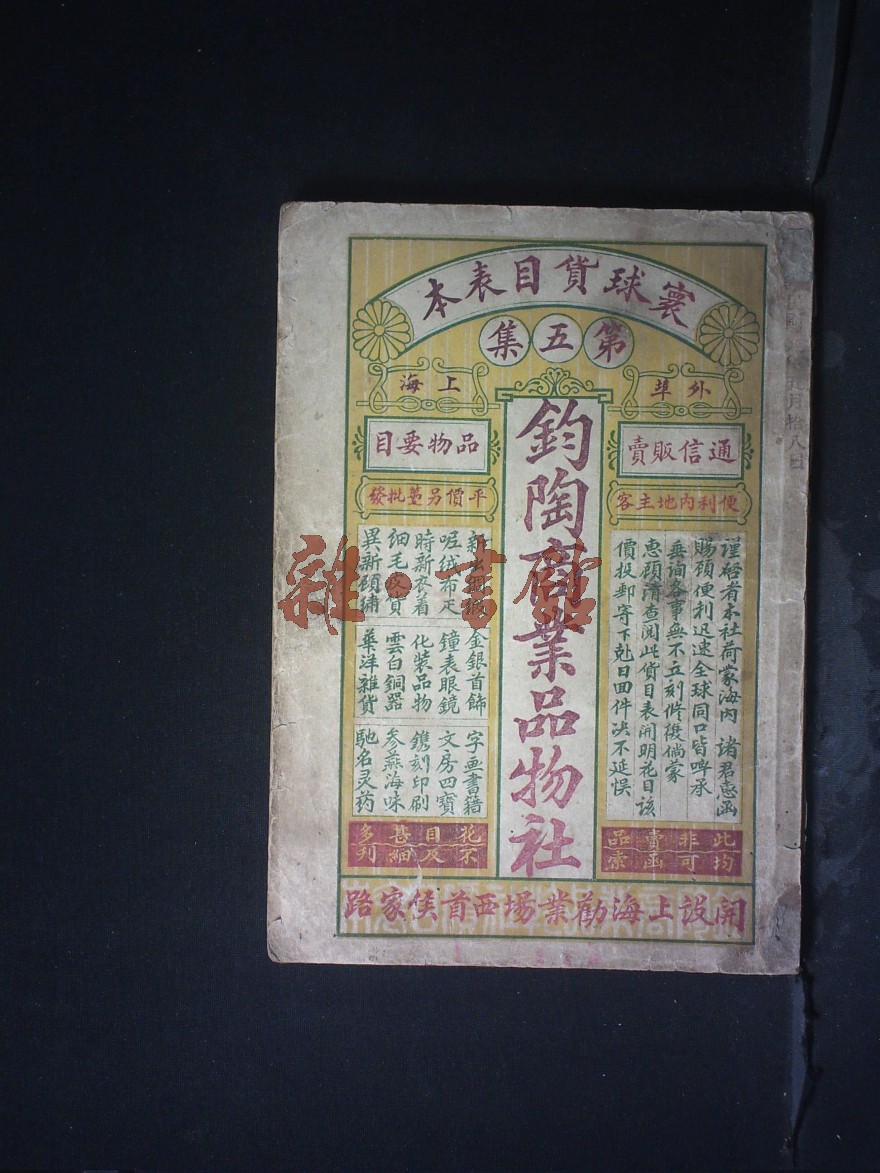 寰球貨目表本
第五集
外埠
通信販賣
便利內地主客
謹啓者本社荷蒙海內 諸君惠函
賜顧便利迅速全球同口皆啤承
垂询各事無不立刻修復倘蒙
惠顧請查閱此貨目表開明花目該
價投郵寄下尅日回件决不延悮
此非賣品
均可函索
鈞陶商業品物社
上海
品物要目
平價另躉批發
金銀首飾 字画書籍
呢绒布疋 鐘表眼鏡 文房四寶
時新衣着 化裝品物 鐫刻印刷
細毛皮貨 雲白銅器 参燕海味
異新顧繡 華洋雜貨 馳名灵药
花目甚多
不及細列
開設上海勸業場西首侯家路
雜·書館